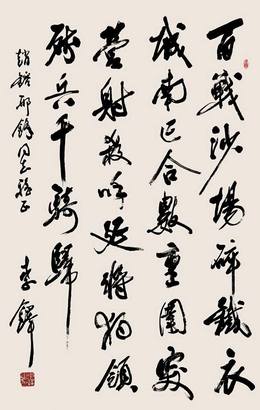 百戰沙場碎鐵衣
城南已合數重圍突
營射殺呼延將独領
殘兵千騎歸
趙 邢 同志 正
李鐸